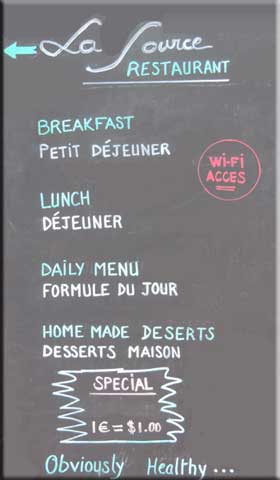 La Source
RESTAURANT
BREAKFAST
PETIT DÉJEUNER
Wi-Fi
ACCES
LUNCH
DÉJEUNER
DAILY MENU
FORMULE DU JOUR
HOME MADE DESERTS
DESSERTS MAISON
SPECIAL
1€ = $1.00
Obviously Healthy...